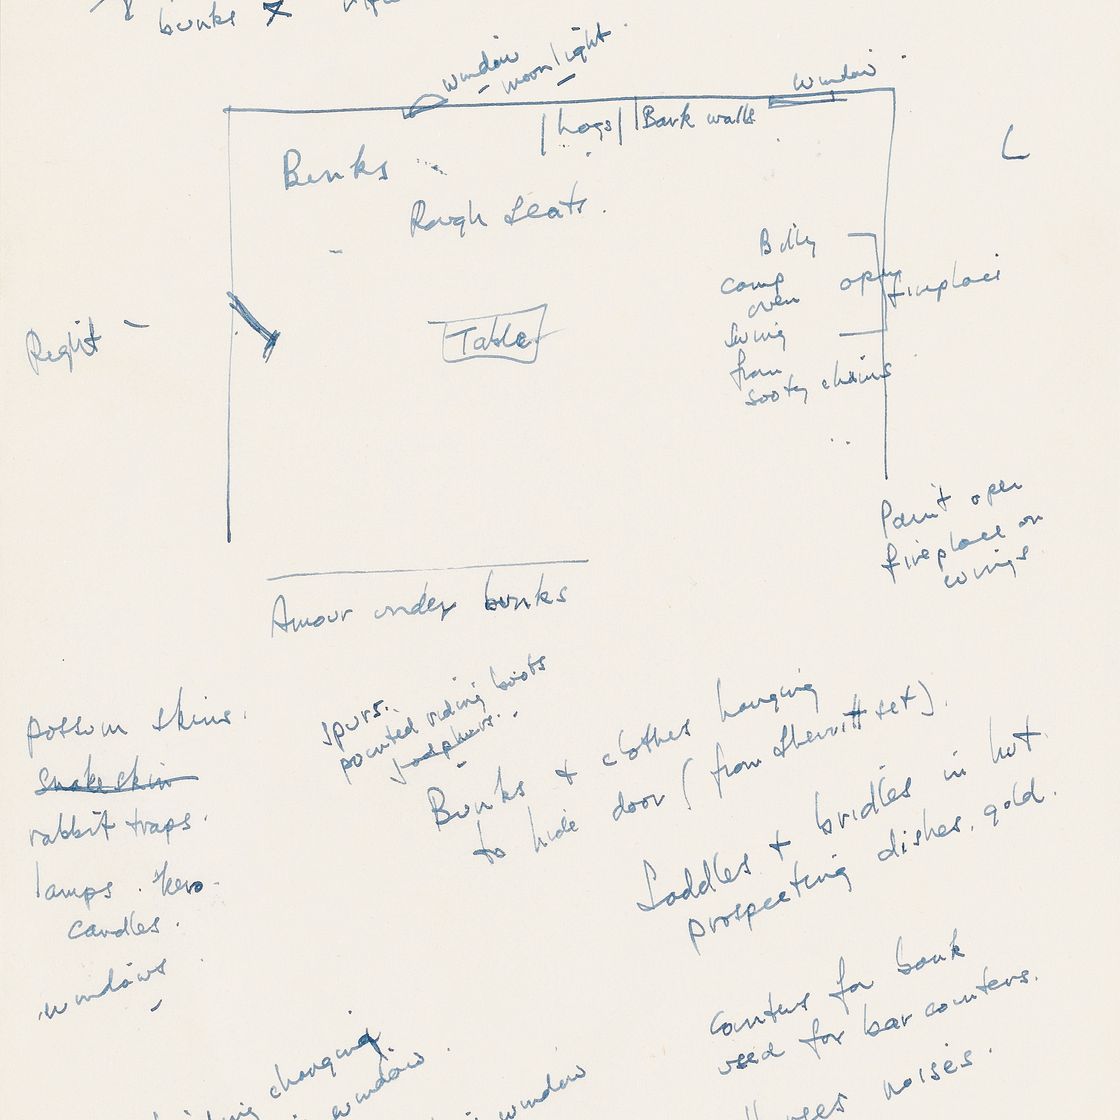 bunks
window
- moonlight.
window.
|Logs| |Bark walls
Bunks
Rough Seats.
Billy
camp
oven
Swing
from
sooty chains
open
fireplace
Right -
Table
Paint open
fireplace on
wings
Amour under bunks
possum skins.
Snake skin
rabbit traps.
lamps. kero.
candles.
windows
spurs.
pointed riding boots
jodphurs.
Bunks + clothes hanging
to hide door (from Sherritt set).
Saddles + bridles in hut.
prospecting dishes. gold.
Counters for bank
used for bar counters.
changing
window
window
noises.